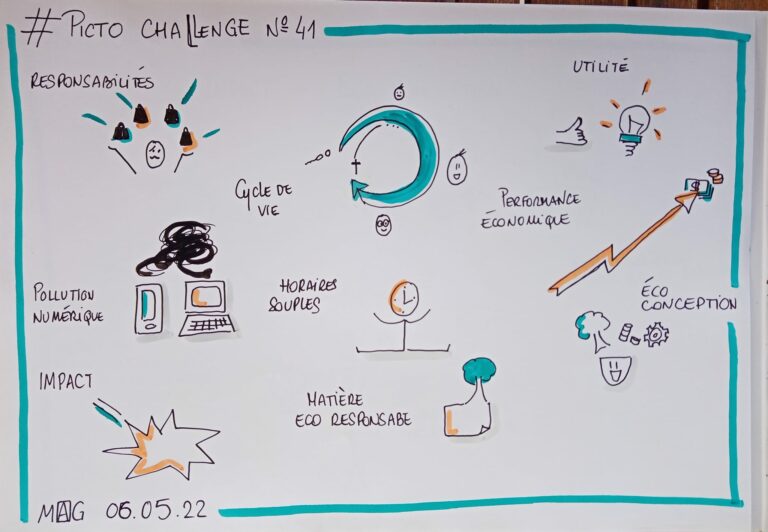 # PICTO CHALLENGE Nº41
RESPONSABILITÉS
UTILITÉ
CYCLE DE
VIE
PERFORMANCE
ÉCONOMIQUE
POLLUTION
NUMÉRIQUE
HORAIRES
SOUPLES
ÉCO
CONCEPTION
IMPACT
MATIÈRE
ECO RESPONSABE
MAG 06.05.22